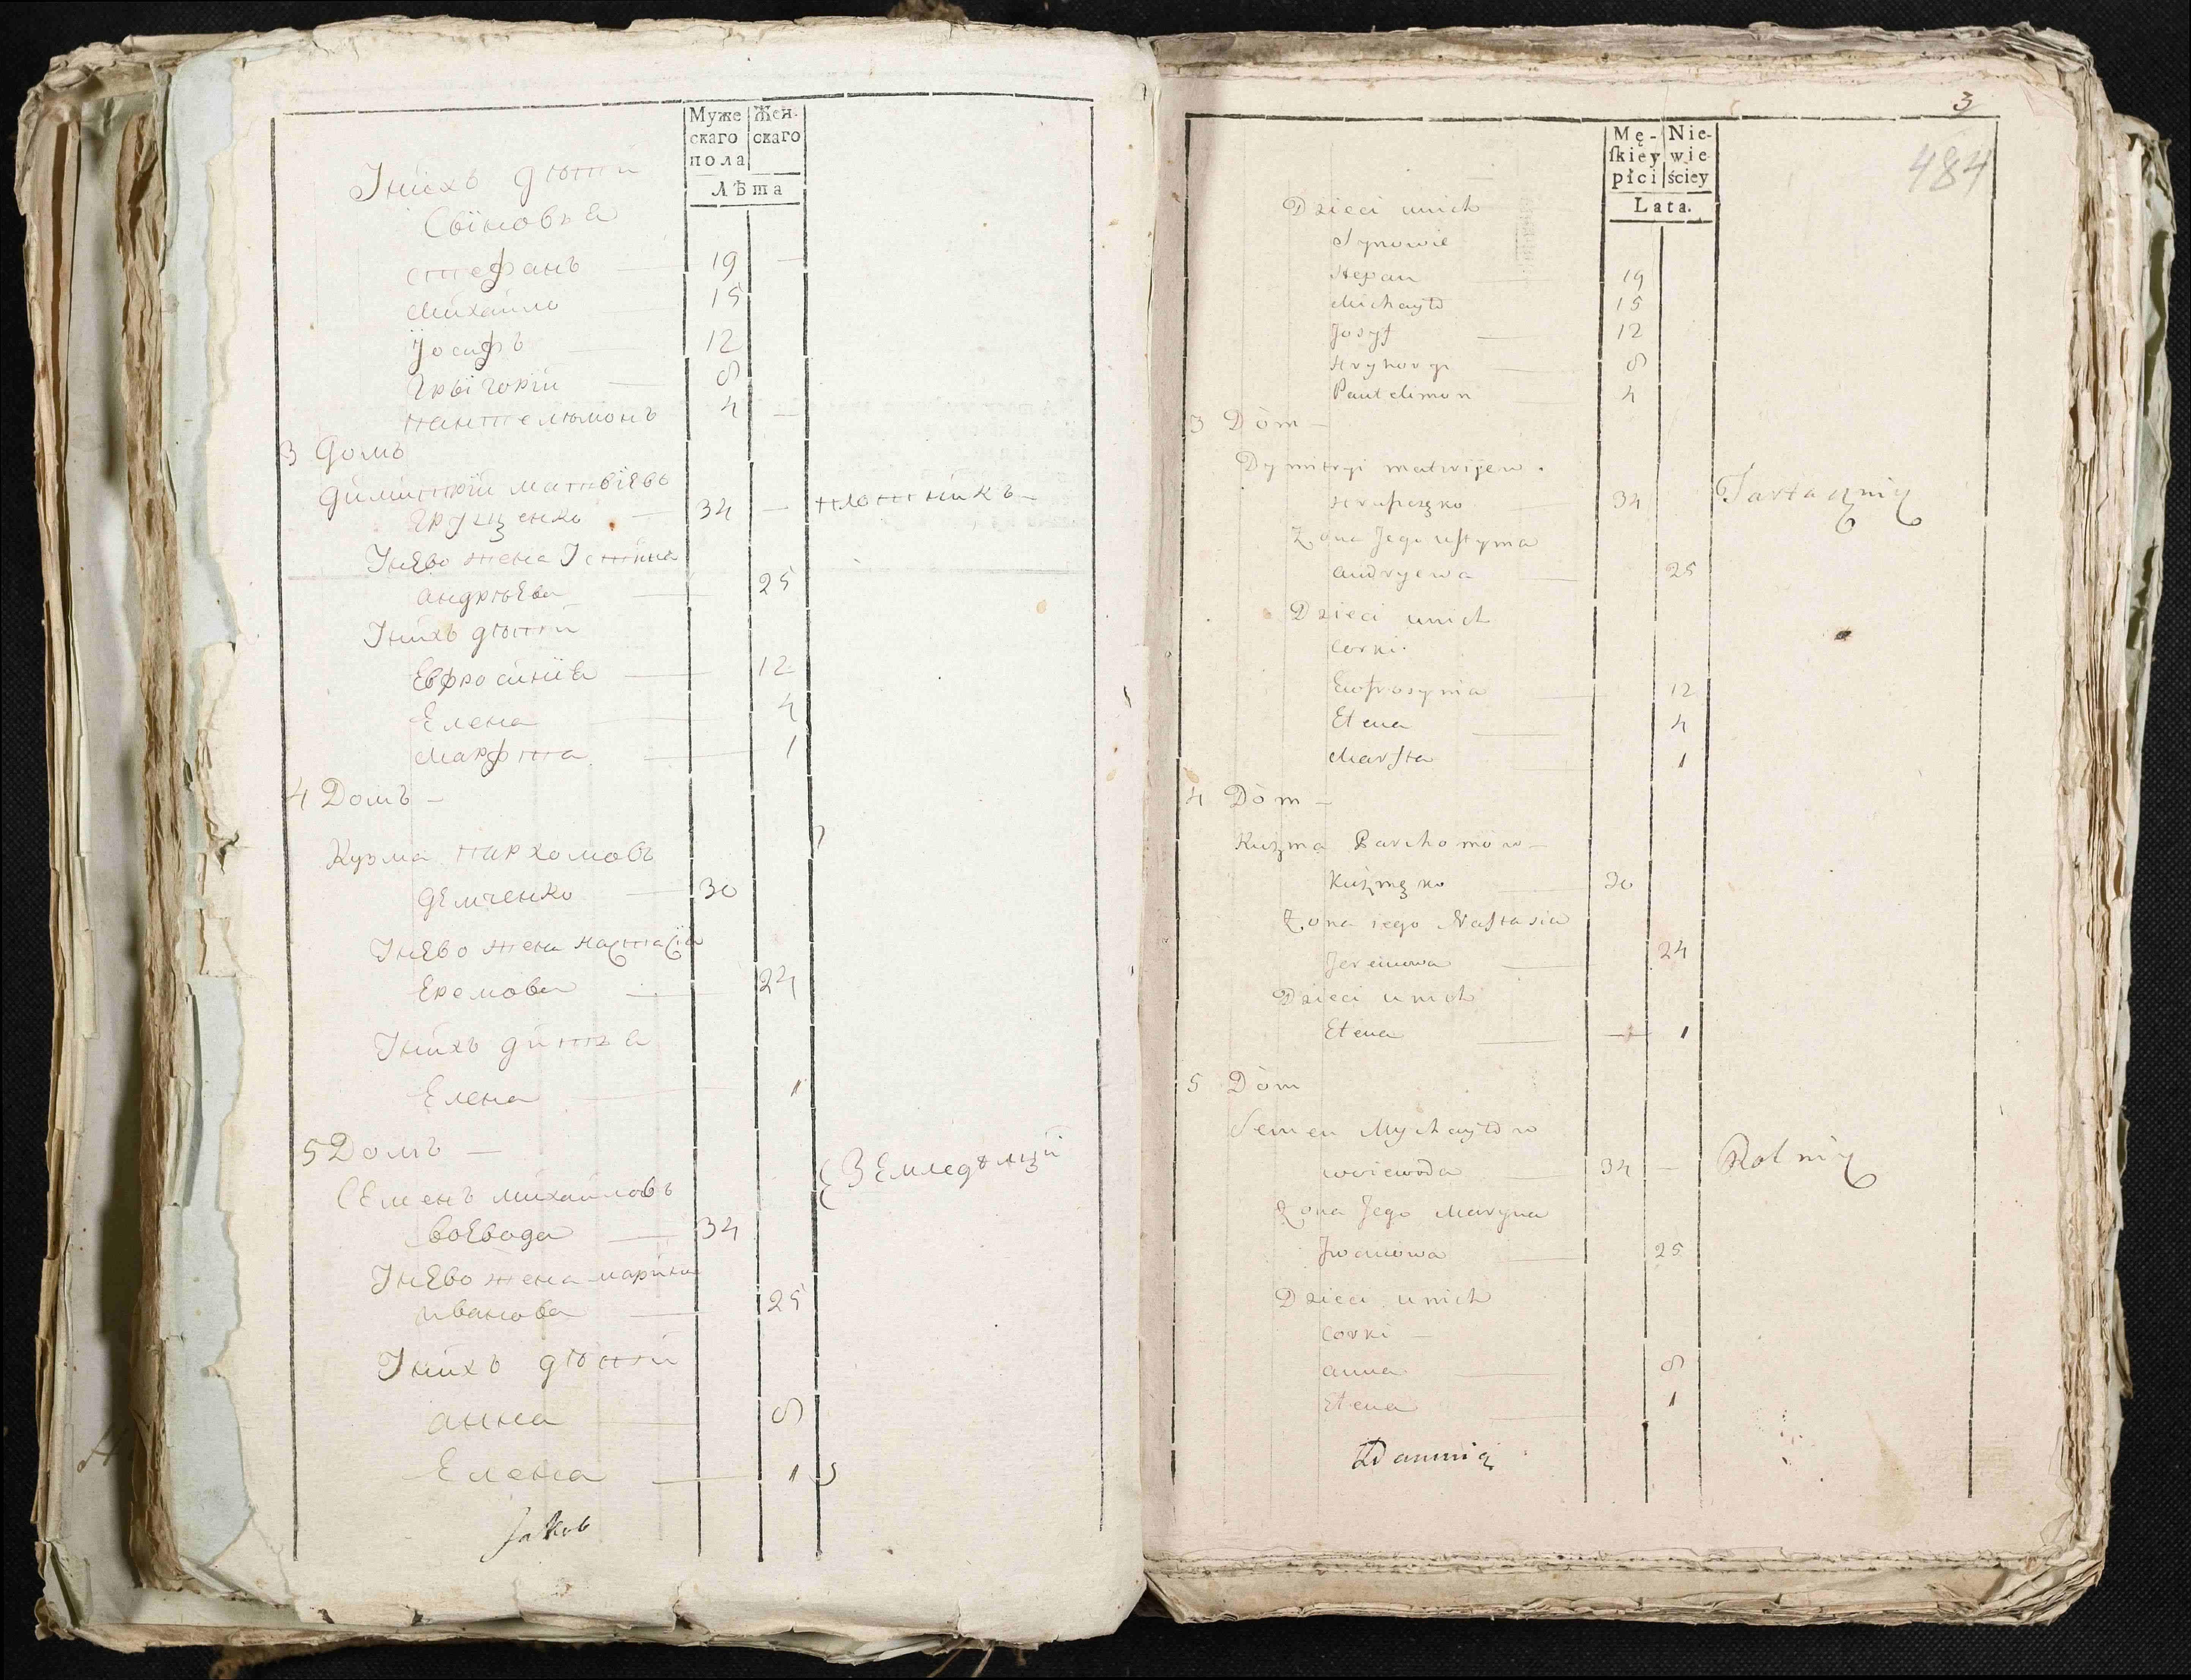 Муже
скаго
пола
Жен-
скаго
Лѣта
Iнихъ дѣти
Свїновья
стефанъ 19 —
михайло 15
Ꙇосифъ 12
Грїгорїй 8
пантелюмонъ 4 —
3 Домъ
Димитрїй матвїевъ
Грущенко 34 — плотникъ —
Iнево жена Iстина
андрѣева 25
Iнихъ дѣти
Евфросинїа 12
Елена 4
марфта 1
4 Домъ —
Кузма пархомовъ
демченко 30
Iнево жена настасїа
Еремова 24
Iнихъ дитъа
Елена 1
5 Домъ —
Семенъ михайловъ Земледѣлцй
воевода 34
Iнево жена марина
иванова 25
Iнихъ дѣти
анна 8
Елена 1
Jakob
3
484
Mę-
skiey
płci
Nie-
wie
ściey
Lata.
Dzieci unich
Synowie
Stepan 19
Michayło 15
Josyf 12
Hryhory 8
Pantelimon 4
3 Dòm —
Dymitryi matwijew.
34
Żona Jego ustyma
andryewa 25
Dzieci unich
Corki.
Ewfrosynia 12
Elena 4
Marfta 1
4 Dòm —
Kuzma Parchomow —
30
Żona iego Nastasia
Jeremowa 24
Dzieci unich
Elena 1
5 Dòm
Semen Mychayłow
woiewoda 34 — Rolnię
Żona Jego Maryna
Jwanowa 25
Dzieci unich
Corki —
anna 8
Elena 1